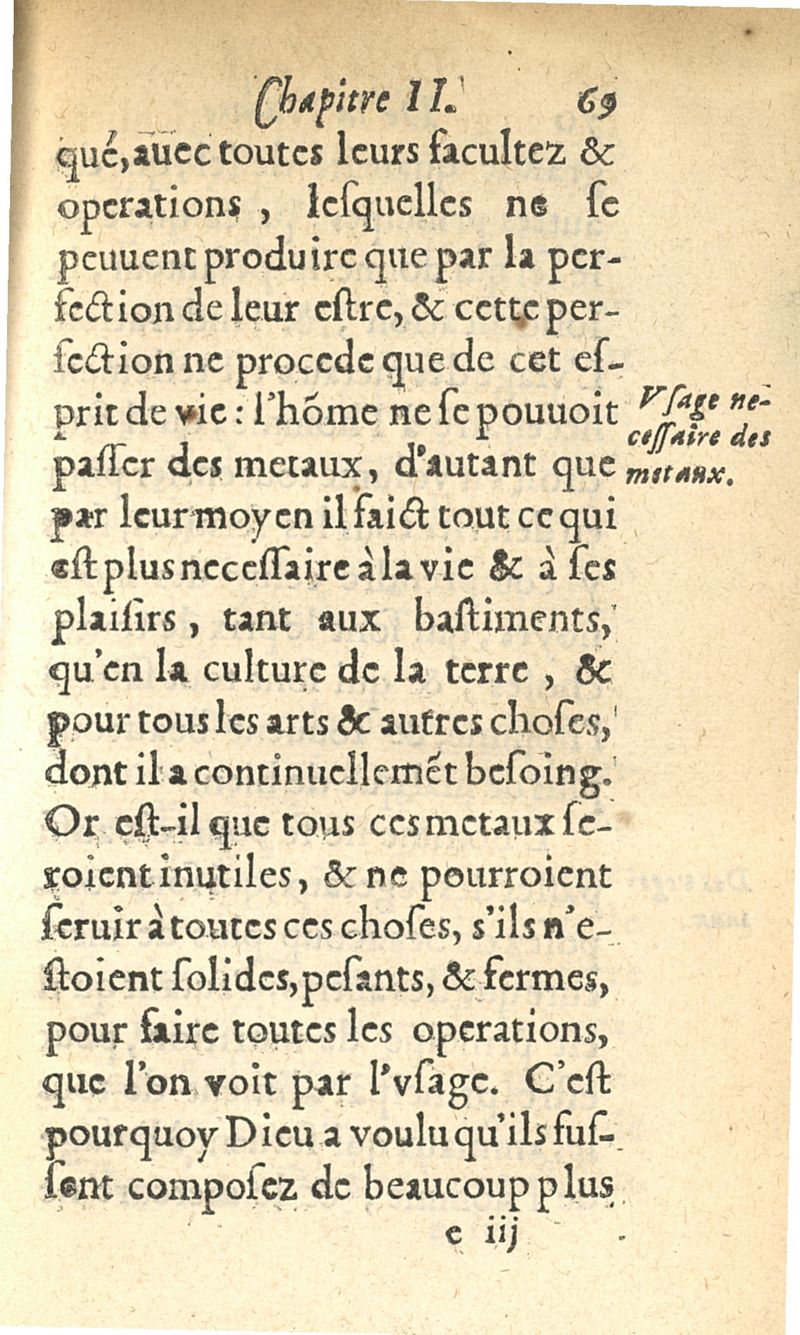 Chapitre II. 69
qué, auec toutes leurs facultez &
operations, leſquelles ne ſe
peuuent produire que par la per-
fection de leur eſtre, & cette per-
fection ne procede que de cet eſ-
prit de vie : l'hõme ne ſe pouuoit
paſſer des metaux, d'autant que
par leur moyen il faict tout ce qui
eſt plus neceſſaire à la vie & à ſes
plaiſirs, tant aux baſtiments,
qu'en la culture de la terre, &
pour tous les arts & autres choſes,
dont il a continuellemẽt beſoing.
Or eſt-il que tous ces metaux ſe-
roient inutiles, & ne pourroient
ſeruir à toutes ces choſes, s'ils n'e-
ſtoient ſolides, peſants, & fermes,
pour faire toutes les operations,
que l'on voit par l'vſage. C'eſt
pourquoy Dieu a voulu qu'ils fuſ-
ſent compoſez de beaucoup plus
e iij
Vſage ne-
ceſſaire des
metaux.